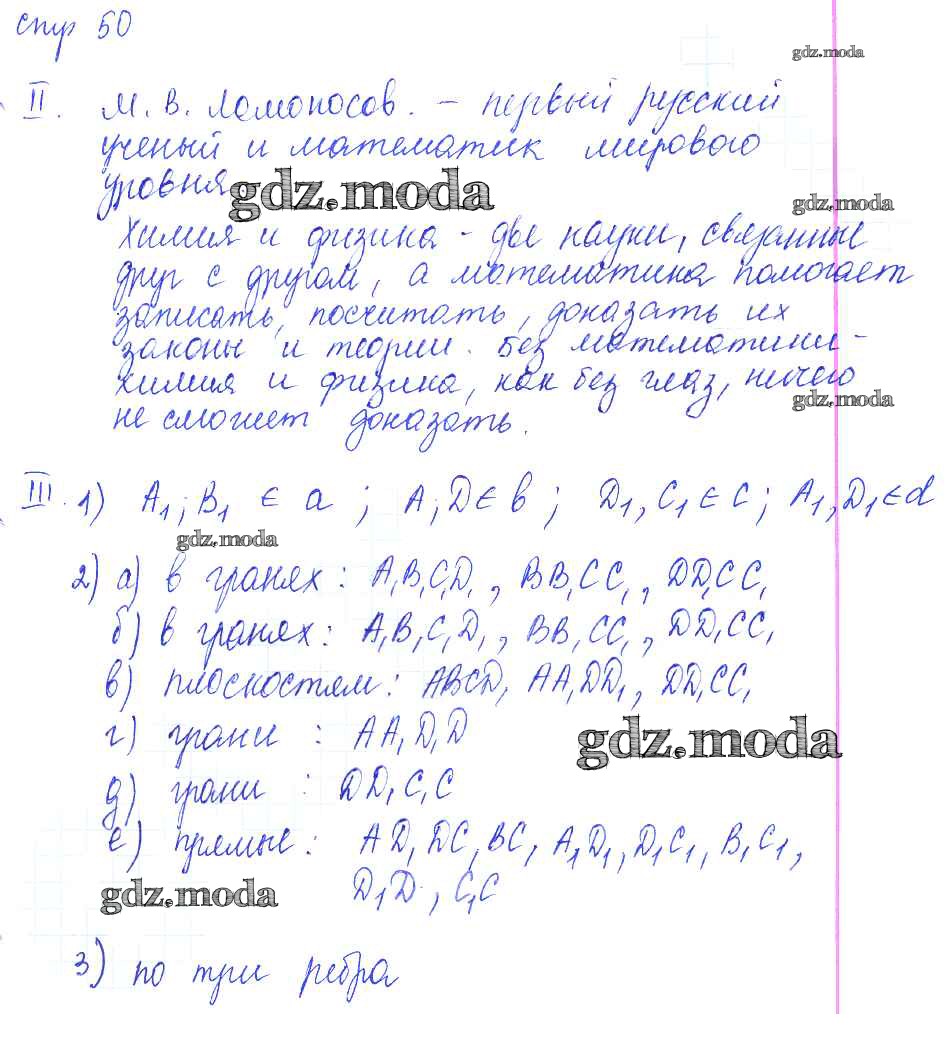 стр 50
gdz.moda
II. М. В. Ломоносов. - первый русский
ученый и математик мирового
уровня
gdz.moda
gdz.moda
Химия и физика - две науки, связанные
друг с другом, а математика помогает
записать, посчитать, доказать их
законы и теории. Без математики -
химия и физика, как без глаз, ничего
gdz.moda
не сможет доказать.
III. 1) A₁; B₁ ∈ a ; A; D ∈ b ; D₁, C₁ ∈ c ; A₁, D₁ ∈ d
gdz.moda
2) а) в гранях: A₁B₁C₁D₁, BB₁CC₁, DD₁CC₁
б) в гранях: A₁B₁C₁D₁, BB₁CC₁, DD₁CC₁
в) плоскостям: ABCD, AA₁DD₁, DD₁CC₁
г) грани : AA₁D₁D
gdz.moda
д) грани : DD₁C₁C
е) прямые: AD, DC, BC, A₁D₁, D₁C₁, B₁C₁,
gdz.moda
D₁D, C₁C
3) по три ребра